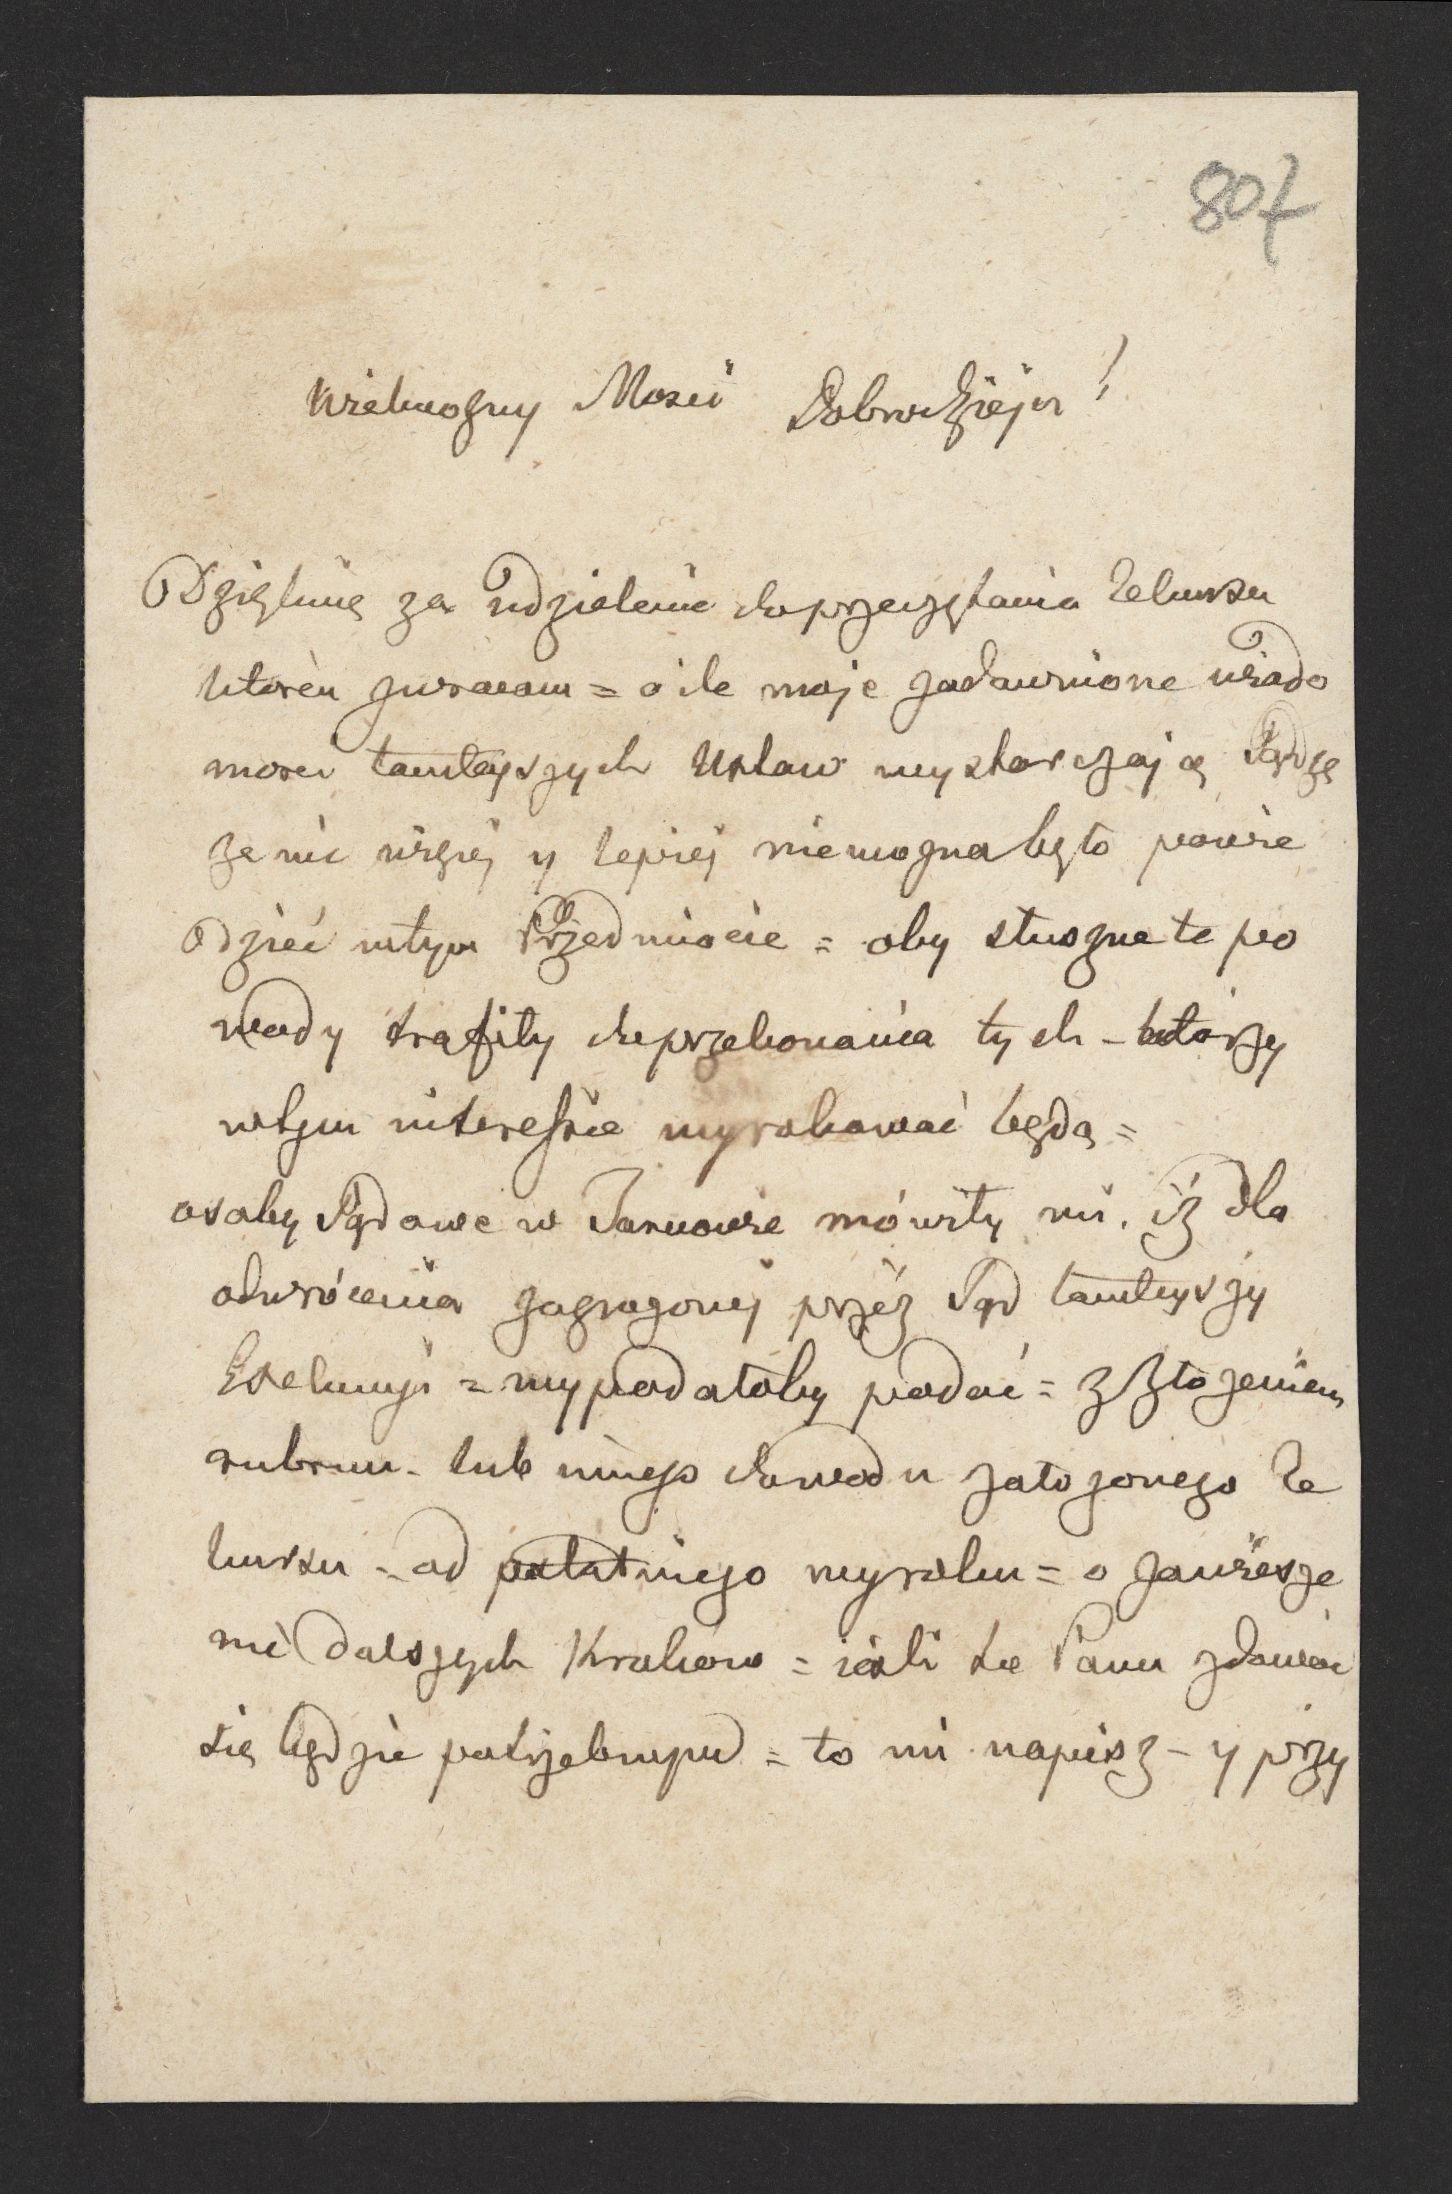 807
Wielmożny Mosci Dobrodzieju!
Dziękuię za udzielenie do przeczytania Rekursu
ktoren zwracam = o ile moje zadawnione wiado
mosci tamteyszych Ustaw wystarczają Sądzę
ze nic więcej y lepiej niemozna było powie
dzieć wtym Przedmiocie = oby słuszne te po
wody trafiły do przekonania tych - którzy
wtym interessie wyrokować będą =
osoby Sądowe w Tarnowie mówiły mi. iż dla
odwrócenia zagrożonej przéz Sąd tamteyszy
Exekucyi = wypodałoby podać = z złożeniem
rubrum - lub innego dowodu założonego Re
kursu - od ostatniego wyroku = o zawiesze
nie dalszych Kroków = iesli to Panu zdawać
się będzie = to mi napisz - y przy